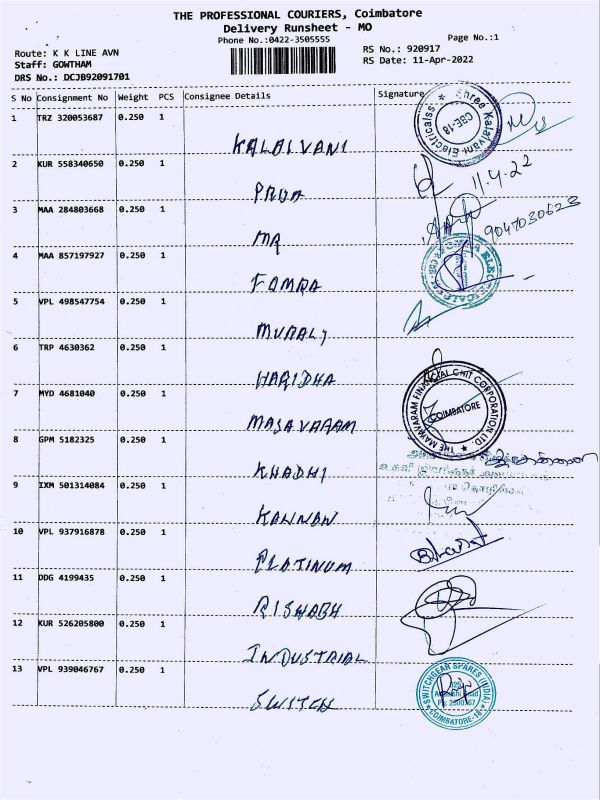 THE PROFESSIONAL COURIERS, Coimbatore
Delivery Runsheet - MO
Phone No.:0422-3505555
Page No.:1
Route: K K LINE AVN
RS No.: 920917
Staff: GOWTHAM
RS Date: 11-Apr-2022
DRS No.: DCJB92091701
S No Consignment No Weight PCS Consignee Details Signature
1 TRZ 320053687 0.250 1
KALAIVANI
Shree Kalaivani Electricalss CBE-18
2 KUR 558340650 0.250 1
11.4.22
3 MAA 284803668 0.250 1
MR
9047030623
4 MAA 857197927 0.250 1
FOMRA
5 VPL 498547754 0.250 1
MURALI
6 TRP 4630362 0.250 1
HARIDHA
7 MYD 4681040 0.250 1
THE MAYAVARAM FINANCIAL CHIT CORPORATION LTD. COIMBATORE
8 GPM 5182325 0.250 1
KHADHI
9 IXM 501314084 0.250 1
KANNAN
10 VPL 937916878 0.250 1
PLATINUM
11 DDG 4199435 0.250 1
RISHABH
12 KUR 526205800 0.250 1
INDUSTRIAL
13 VPL 939046767 0.250 1
SWITCH
SWITCHGEAR SPARES (INDIA)
COIMBATORE-18